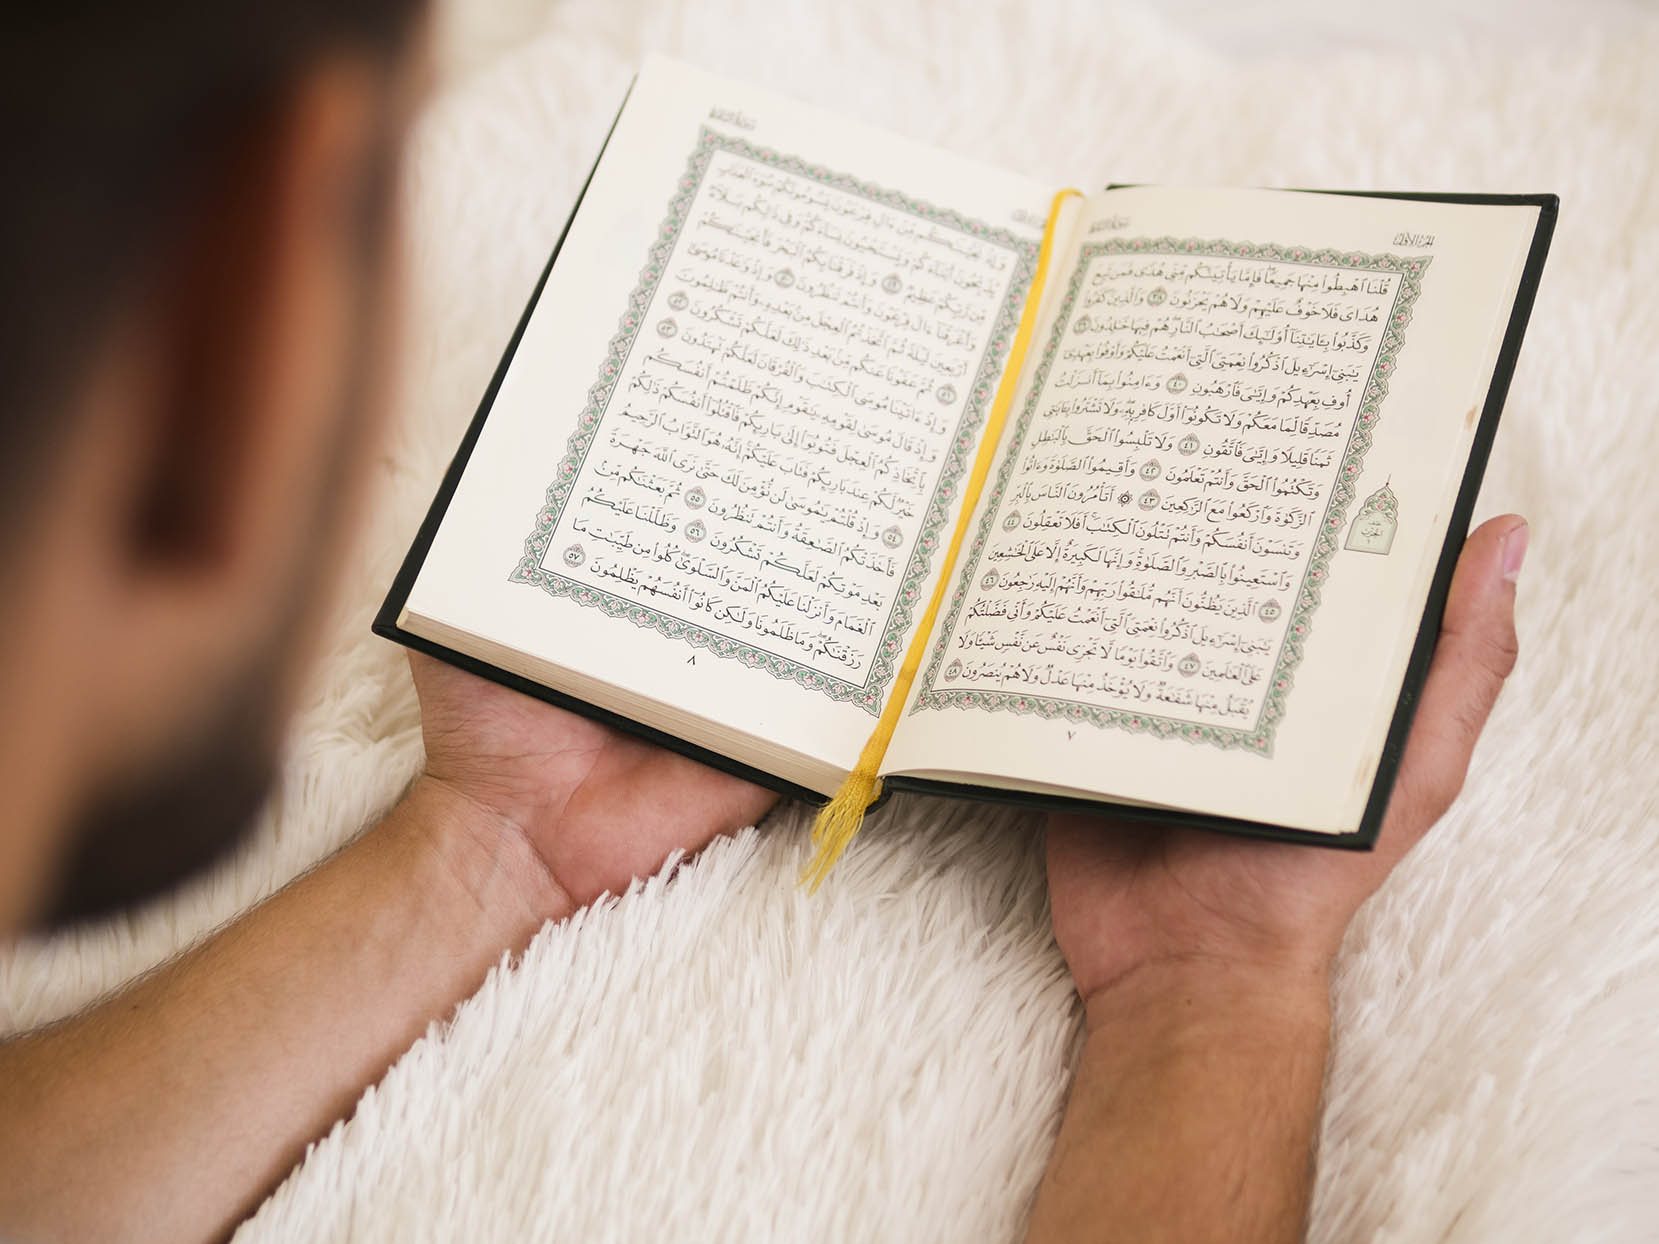 الجزء الأول
سورة البقرة
قُلْنَا ٱهْبِطُوا۟ مِنْهَا جَمِيعًا ۖ فَإِمَّا يَأْتِيَنَّكُم مِّنِّى هُدًى فَمَن تَبِعَ
هُدَاىَ فَلَا خَوْفٌ عَلَيْهِمْ وَلَا هُمْ يَحْزَنُونَ ٣٨ وَٱلَّذِينَ كَفَرُوا۟
وَكَذَّبُوا۟ بِـَٔايَـٰتِنَآ أُو۟لَـٰٓئِكَ أَصْحَـٰبُ ٱلنَّارِ ۖ هُمْ فِيهَا خَـٰلِدُونَ ٣٩
يَـٰبَنِىٓ إِسْرَٰٓءِيلَ ٱذْكُرُوا۟ نِعْمَتِىَ ٱلَّتِىٓ أَنْعَمْتُ عَلَيْكُمْ وَأَوْفُوا۟ بِعَهْدِىٓ
أُوفِ بِعَهْدِكُمْ وَإِيَّـٰىَ فَٱرْهَبُونِ ٤٠ وَءَامِنُوا۟ بِمَآ أَنزَلْتُ
مُصَدِّقًا لِّمَا مَعَكُمْ وَلَا تَكُونُوٓا۟ أَوَّلَ كَافِرٍۭ بِهِۦ ۖ وَلَا تَشْتَرُوا۟ بِـَٔايَـٰتِى
ثَمَنًا قَلِيلًا وَإِيَّـٰىَ فَٱتَّقُونِ ٤١ وَلَا تَلْبِسُوا۟ ٱلْحَقَّ بِٱلْبَـٰطِلِ
وَتَكْتُمُوا۟ ٱلْحَقَّ وَأَنتُمْ تَعْلَمُونَ ٤٢ وَأَقِيمُوا۟ ٱلصَّلَوٰةَ وَءَاتُوا۟
ٱلزَّكَوٰةَ وَٱرْكَعُوا۟ مَعَ ٱلرَّٰكِعِينَ ٤٣ ۞ أَتَأْمُرُونَ ٱلنَّاسَ بِٱلْبِرِّ
وَتَنسَوْنَ أَنفُسَكُمْ وَأَنتُمْ تَتْلُونَ ٱلْكِتَـٰبَ ۚ أَفَلَا تَعْقِلُونَ ٤٤
وَٱسْتَعِينُوا۟ بِٱلصَّبْرِ وَٱلصَّلَوٰةِ ۚ وَإِنَّهَا لَكَبِيرَةٌ إِلَّا عَلَى ٱلْخَـٰشِعِينَ
٤٥ ٱلَّذِينَ يَظُنُّونَ أَنَّهُم مُّلَـٰقُوا۟ رَبِّهِمْ وَأَنَّهُمْ إِلَيْهِ رَٰجِعُونَ ٤٦
يَـٰبَنِىٓ إِسْرَٰٓءِيلَ ٱذْكُرُوا۟ نِعْمَتِىَ ٱلَّتِىٓ أَنْعَمْتُ عَلَيْكُمْ وَأَنِّى فَضَّلْتُكُمْ
عَلَى ٱلْعَـٰلَمِينَ ٤٧ وَٱتَّقُوا۟ يَوْمًا لَّا تَجْزِى نَفْسٌ عَن نَّفْسٍ شَيْـًٔا وَلَا
يُقْبَلُ مِنْهَا شَفَـٰعَةٌ وَلَا يُؤْخَذُ مِنْهَا عَدْلٌ وَلَا هُمْ يُنصَرُونَ ٤٨
نصف
الحزب
١
٧
سورة البقرة
وَإِذْ نَجَّيْنَـٰكُم مِّنْ ءَالِ فِرْعَوْنَ يَسُومُونَكُمْ سُوٓءَ ٱلْعَذَابِ
يُذَبِّحُونَ أَبْنَآءَكُمْ وَيَسْتَحْيُونَ نِسَآءَكُمْ ۚ وَفِى ذَٰلِكُم بَلَآءٌ
مِّن رَّبِّكُمْ عَظِيمٌ ٤٩ وَإِذْ فَرَقْنَا بِكُمُ ٱلْبَحْرَ فَأَنجَيْنَـٰكُمْ
وَأَغْرَقْنَآ ءَالَ فِرْعَوْنَ وَأَنتُمْ تَنظُرُونَ ٥٠ وَإِذْ وَٰعَدْنَا مُوسَىٰٓ
أَرْبَعِينَ لَيْلَةً ثُمَّ ٱتَّخَذْتُمُ ٱلْعِجْلَ مِنۢ بَعْدِهِۦ وَأَنتُمْ ظَـٰلِمُونَ
٥١ ثُمَّ عَفَوْنَا عَنكُم مِّنۢ بَعْدِ ذَٰلِكَ لَعَلَّكُمْ تَشْكُرُونَ ٥٢
وَإِذْ ءَاتَيْنَا مُوسَى ٱلْكِتَـٰبَ وَٱلْفُرْقَانَ لَعَلَّكُمْ تَهْتَدُونَ ٥٣
وَإِذْ قَالَ مُوسَىٰ لِقَوْمِهِۦ يَـٰقَوْمِ إِنَّكُمْ ظَلَمْتُمْ أَنفُسَكُم
بِٱتِّخَاذِكُمُ ٱلْعِجْلَ فَتُوبُوٓا۟ إِلَىٰ بَارِئِكُمْ فَٱقْتُلُوٓا۟ أَنفُسَكُمْ ذَٰلِكُمْ
خَيْرٌ لَّكُمْ عِندَ بَارِئِكُمْ فَتَابَ عَلَيْكُمْ ۚ إِنَّهُۥ هُوَ ٱلتَّوَّابُ ٱلرَّحِيمُ
٥٤ وَإِذْ قُلْتُمْ يَـٰمُوسَىٰ لَن نُّؤْمِنَ لَكَ حَتَّىٰ نَرَى ٱللَّهَ جَهْرَةً
فَأَخَذَتْكُمُ ٱلصَّـٰعِقَةُ وَأَنتُمْ تَنظُرُونَ ٥٥ ثُمَّ بَعَثْنَـٰكُم مِّنۢ
بَعْدِ مَوْتِكُمْ لَعَلَّكُمْ تَشْكُرُونَ ٥٦ وَظَلَّلْنَا عَلَيْكُمُ
ٱلْغَمَامَ وَأَنزَلْنَا عَلَيْكُمُ ٱلْمَنَّ وَٱلسَّلْوَىٰ ۖ كُلُوا۟ مِن طَيِّبَـٰتِ مَا
رَزَقْنَـٰكُمْ ۖ وَمَا ظَلَمُونَا وَلَـٰكِن كَانُوٓا۟ أَنفُسَهُمْ يَظْلِمُونَ ٥٧
٨